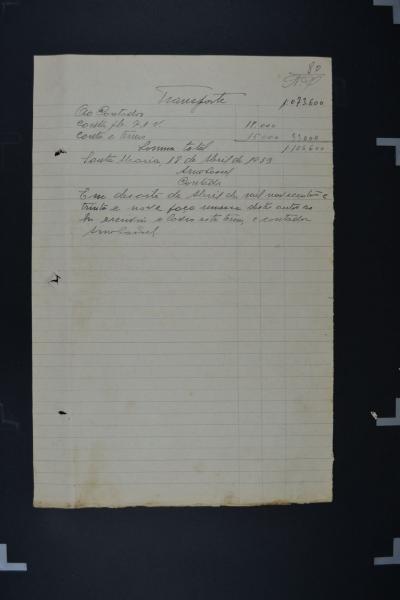 80
Transporte 1:073.600
Ao Contador
Conta fl. 7.1 V. 18.000
Conta e termo 15.000 33.000
Somma total 1:106.600
Santa Maria, 18 de Abril de 1939
Contador
Em desoito de Abril de mil novecentos e
trinta e nove faço remessa destes autos ao
Sr. escrivão e lavro este termo, o contador